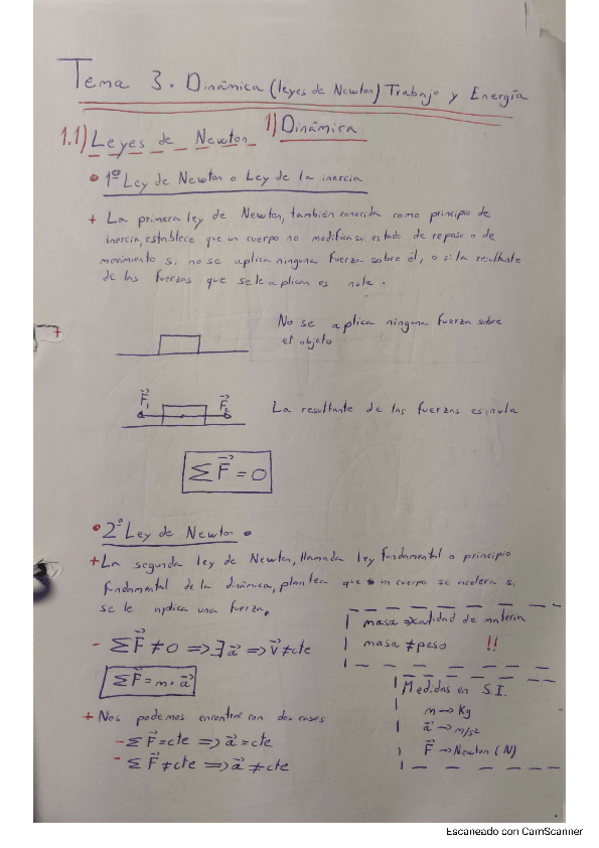 Tema 3. Dinámica (leyes de Newton) Trabajo y Energía
1) Dinámica
1.1) Leyes de Newton
• 1º Ley de Newton o Ley de la inercia
+ La primera ley de Newton, también conocida como principio de
inercia, establece que un cuerpo no modifica su estado de reposo o de
movimiento si no se aplica ninguna fuerza sobre él, o si la resultante
de las fuerzas que se le aplican es nula.
No se aplica ninguna fuerza sobre
el objeto
7
F⃗₁ F⃗₂ La resultante de las fuerzas es nula
ΣF⃗ = 0
• 2º Ley de Newton.
+ La segunda ley de Newton, llamada ley fundamental o principio
fundamental de la dinámica, plantea que un cuerpo se acelera si
se le aplica una fuerza.
masa ⇒ cantidad de materia
masa ≠ peso !!
- ΣF⃗ ≠ 0 ⇒ ∃ a⃗ ⇒ v⃗ ≠ cte
ΣF⃗ = m · a⃗
Medidas en S.I.
m → Kg
a⃗ → m/s²
F⃗ → Newton (N)
+ Nos podemos encontrar con dos casos
- ΣF⃗ = cte ⇒ a⃗ = cte
- ΣF⃗ ≠ cte ⇒ a⃗ ≠ cte
Escaneado con CamScanner